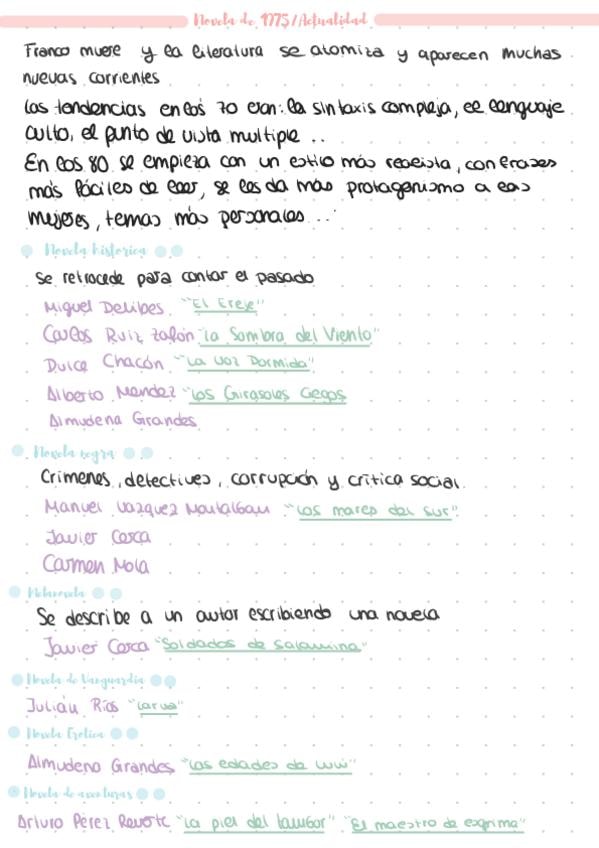 Novela de 1975/Actualidad
Franco muere y la literatura se atomiza y aparecen muchas
nuevas corrientes
Las tendencias en los 70 eran: la sintaxis compleja, el lenguaje
culto, el punto de vista multiple ..
En los 80 se empieza con un estilo más realista, con frases
más fáciles de leer, se les da más protagonismo a las
mujeres, temas más personales ...
Novela historica
Se retrocede para contar el pasado
Miguel Delibes "El Ereje"
Carlos Ruiz Zafón "La Sombra del Viento"
Dulce Chacón "La Voz Dormida"
Alberto Mendez "Los Girasoles Ciegos
Almudena Grandes
Novela negra
Crimenes, detectives, corrupción y crítica social
Manuel Vazquez Montalbau "Los mares del sur"
Javier Cerca
Carmen Mola
Metanovela
Se describe a un autor escribiendo una novela
Javier Cerca "Soldados de Salamina"
Novela de Vanguardia
Julián Ríos "Larva"
Novela Erotica
Almudena Grandes "Las edades de Lulú"
Novela de aventuras
Arturo Pérez Reverte "La piel del tambor" "El maestro de esgrima"